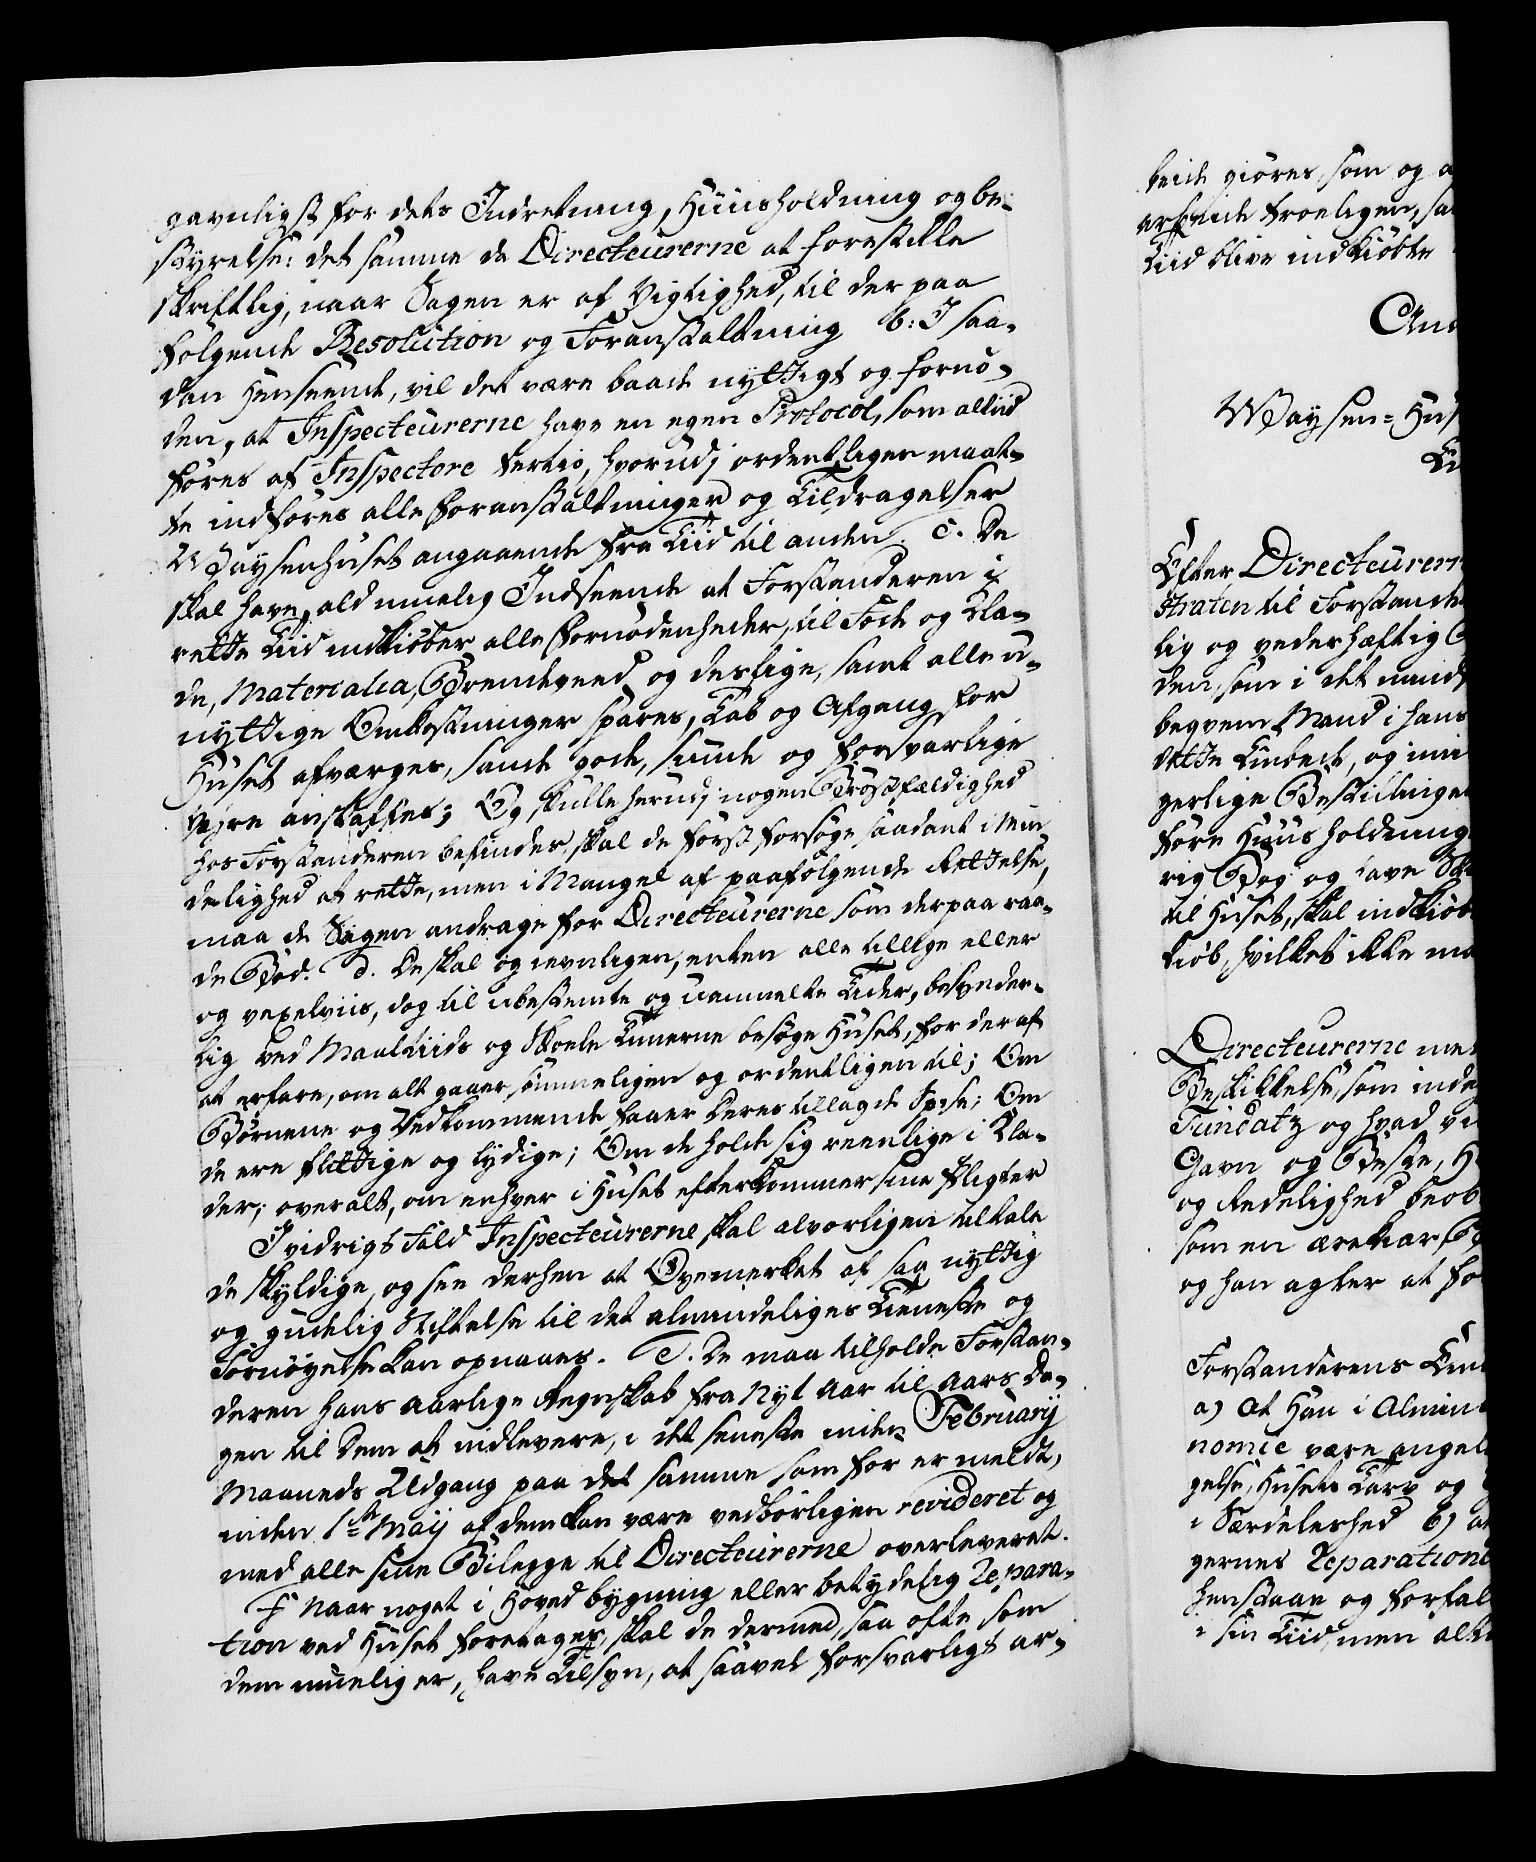 gavnligst for dets Indretning, Huusholdning og be-
styrelse: det samme de Directeurerne at forestille
skriftlig, naar Sagen er af Vigtighed, til der paa
følgende Resolution og Foranstaltning b: I saa-
dan Henseende, vil det være baade nyttigt og fornø-
den, at Inspecteurerne have en egen Protocol, som altiid
føres af Inspectore tertio, hvorudj ordentligen maat-
te indføres alle Foranstaltninger og Tildragelser
Waysenhuset angaaende fra Tiid til anden. c. De
skal have ald muelig Indseende at Forstanderen i
rette Tiid indkiøber alle Fornødenheder, til Føde og Klæ-
de, Materialia, Brendeveed og deslige, samt alle u-
nyttige Omkostninger spares, Tab og Afgang for
Huset afværges, samt gode, sunde og forsvarlige
Vahre anskaffes; Og skulle herudj nogen Brøstfældighed
hos Forstanderen befindes, skal de først forsøge saadant i Min-
delighed at rette, men i Mangel af paafølgende Rettelse,
maa de Sagen andrage for Directeurerne som derpaa raa-
de Bod. d. De skal og jevnligen, enten alle tillige eller
og vexelviis, dog til ubestemte og uanmelte Tider, besynder-
lig ved Maaltiids og Skoele Timerne besøge Huset, for deraf
at erfare, om alt gaaer sømmeligen og ordentligen til; Om
Børnene og Vedkommende faaer deres tillagde Spise; Om
de ere flittige og lydige; Om de holde sig reenlige i Klæ-
der; overalt, om enhver i Huset efterkommer sine Pligter
I vidrigt Fald Inspecteurerne skal alvorligen tiltale
de skyldige, og see derhen at Øyemerket af saa nyttig
og gudelig Stiftelse til det almindeliges Tieneste og
Fornøyelse kan opnaaes. e. De maa tilholde Forstan-
deren hans aarlige Regnskab fra Nyt Aar til Aars Da-
gen til dem at indlevere, i det seneste inden February
Maaneds Udgang paa det samme som før er meldt,
inden 1te Maij af dem kan være vedbørligen revideret og
med alle sine Bilegge til Directeurerne overleveret.
F Naar noget i Hovedbygning eller betydelig Repara-
tion ved Huset foretages, skal de dermed, saa ofte som
dem muelig er, have Tilsyn, at saavel forsvarligt ar-
beide giøres som og
arbeide troeligen,
Tiid blive indkiøbte
Waysen-Hus
Efter Directeurern
straten til Forstande
lig og vederhæftig
den, som i det mind
beqvem Mand i hans
dette Embede, og
gerlige Bestillinge
føre Huusholdning
rig Bog og have
til Huset, skal indkiøb
kiøb, hvilket ikke ma
Directeurerne me
Beskikkelse, som inde
Fundatz og hvad
Gavn og Beste,
og Redelighed
som en ærekiær
og han agter at
Forstanderens Em
a) At Han i Almin
nomie være
gelse, Husets Tarv og
i Særdeleshed b)
gernes Reparation
henstaae og forfal
i sin Tiid, men